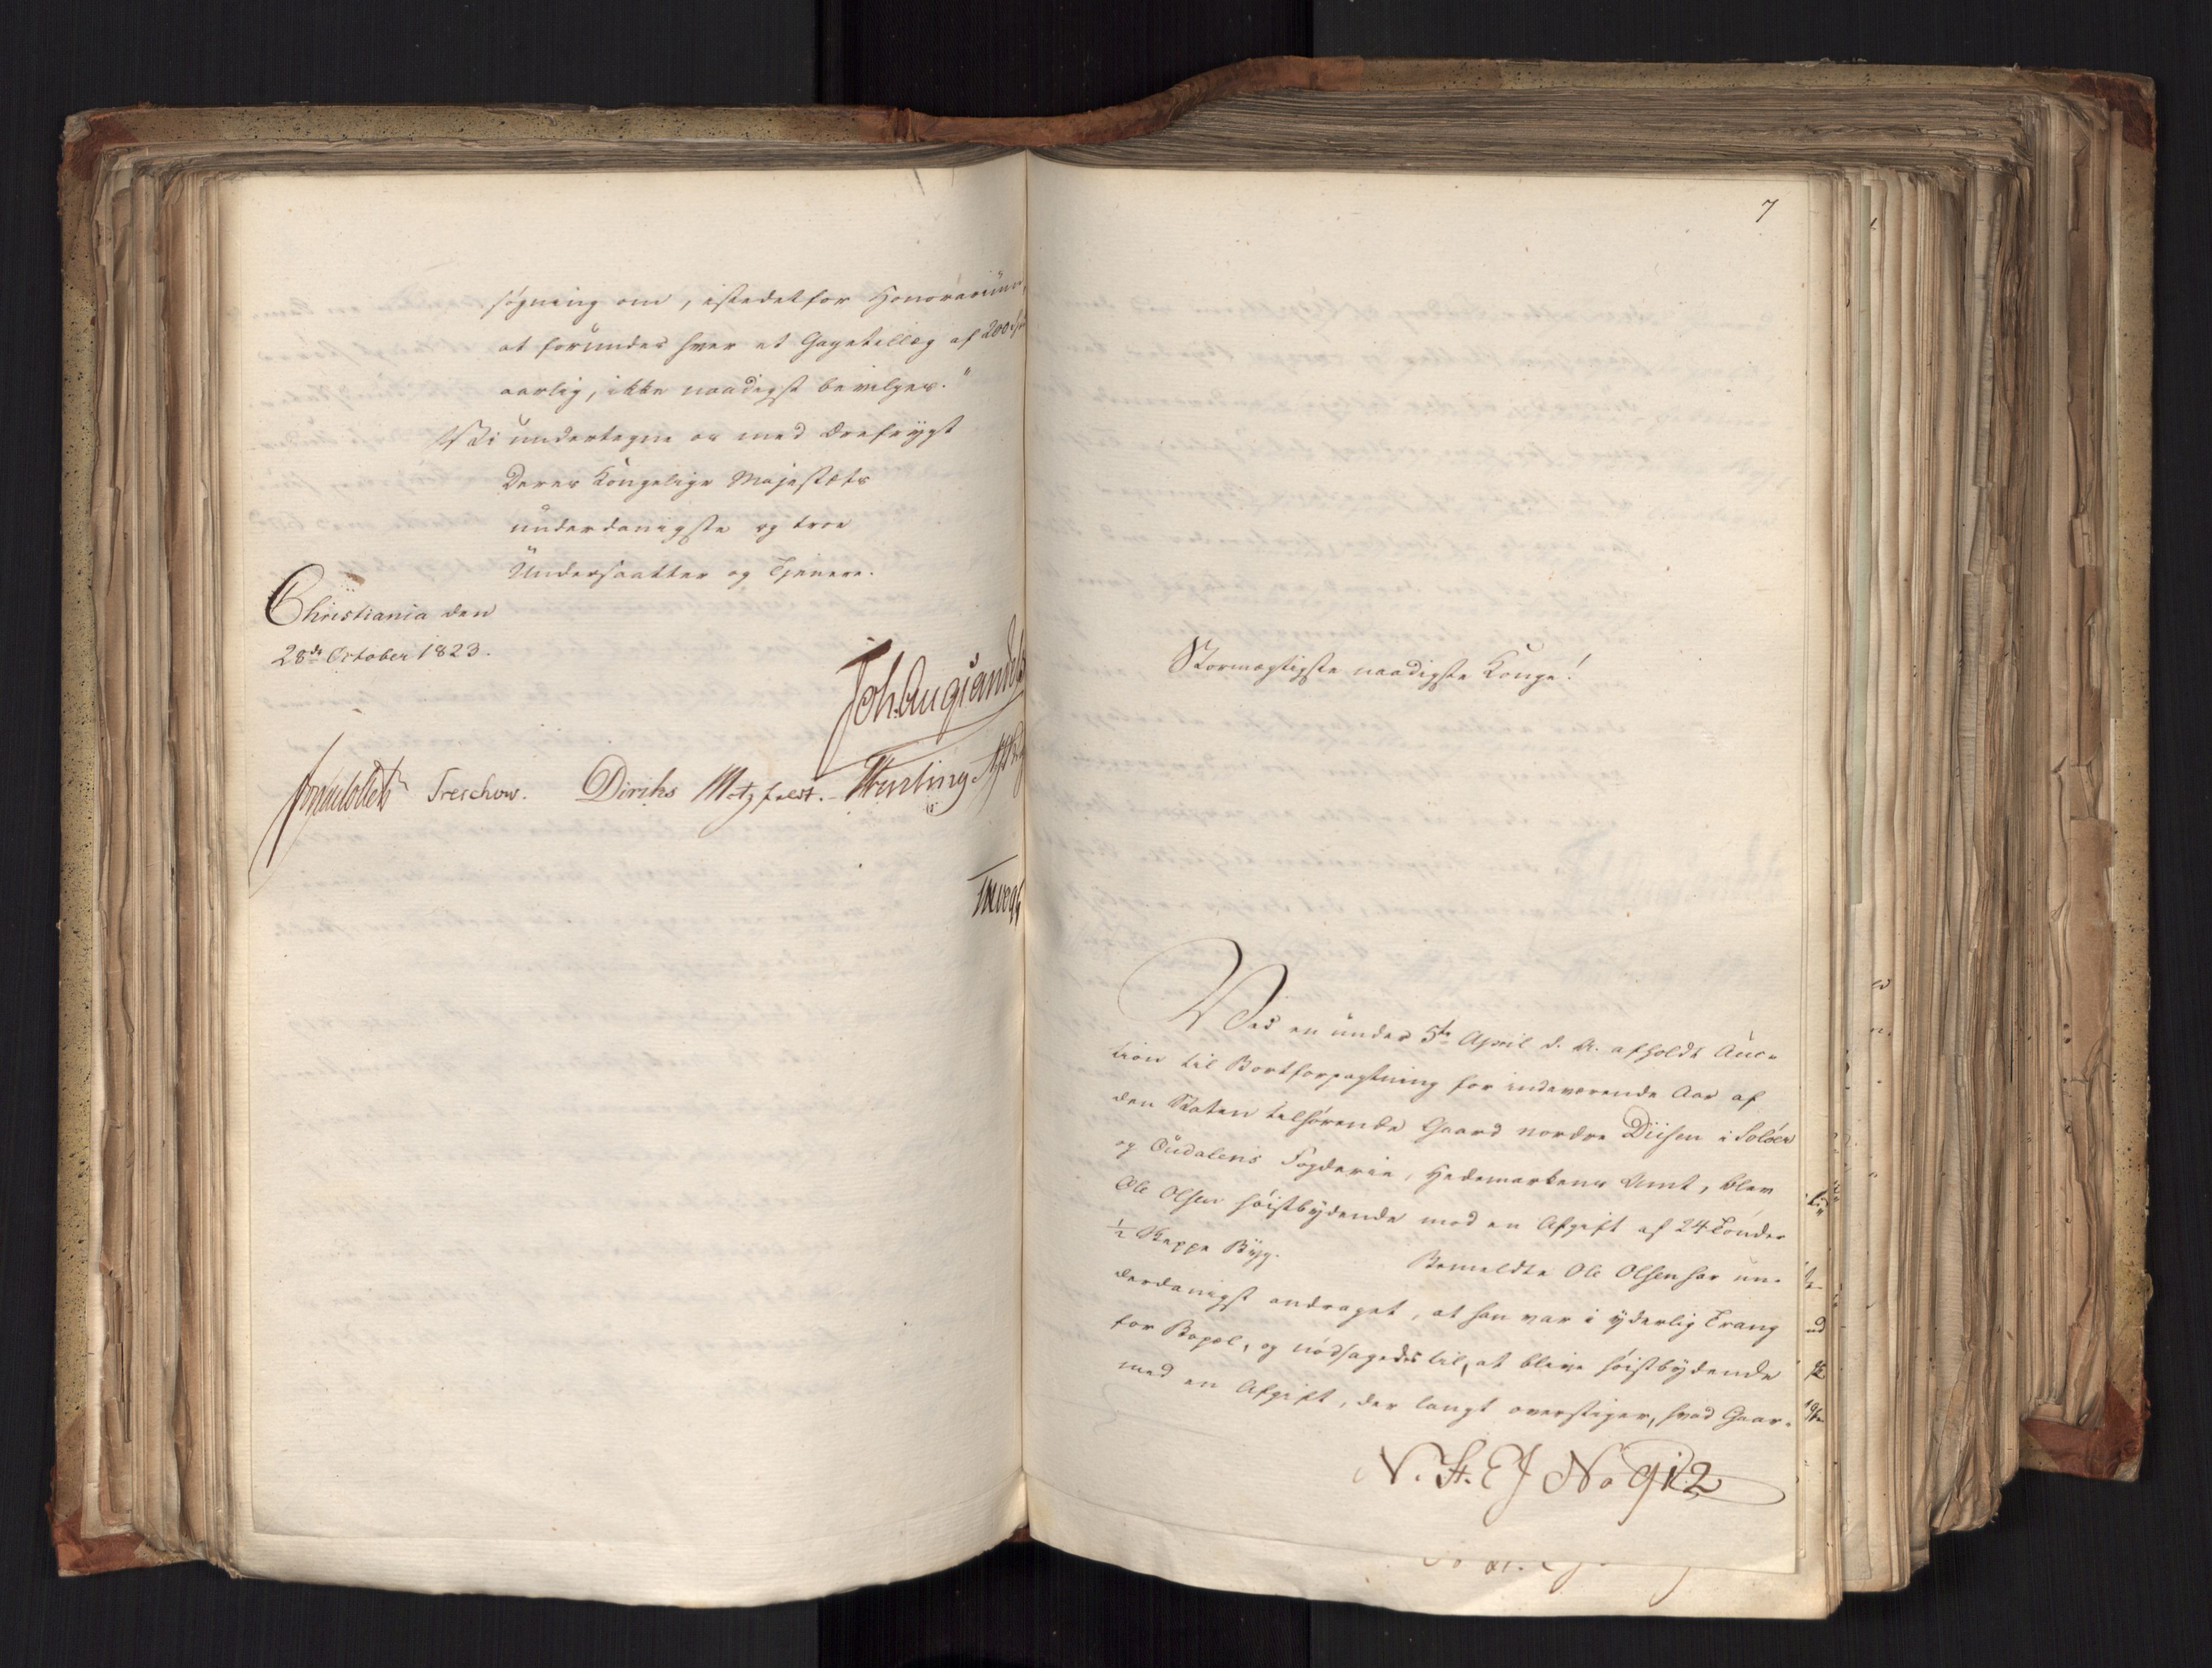 søgning om, istedetfor Honorarium,
at forundes hver et Gagetillæg af 200
aarlig, ikke naadigst bevilges."
Vi undertegne os med Ærefrygt
Deres Kongelige Majestæts
underdanigste og troe
Undersaatter og Tjenere.
Christiania den
28de October 1823.
Joh. Aug. Sandels
Treschow. Diriks Motzfeldt.
7
Stormægtigste naadigste Konge!
Ved en under 5te April d. A. afholdt Auc-
tion til Bortforpagtning for indeværende Aar af
den Staten tilhørende Gaard nordre Diisen i Soløer
og Oudalens Fogderie, Hedemarkens Amt, blev
Ole Olsen høistbydende med en Afgift af 24 Tønder
½ Skeppe Byg. Bemeldte Ole Olsen har un-
derdanigst andraget, at han var i yderlig Trang
for Bopæl, og nødsagedes til, at blive høistbydende
med en Afgift, der langt overstiger, hvad Gaar-
N. St. E J No 912